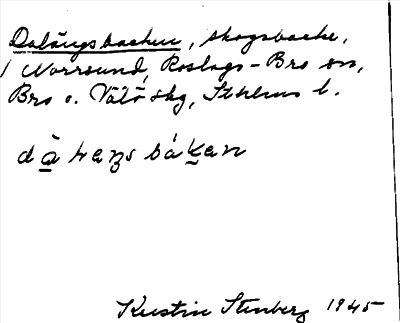 Dalängsbacken, skogsbacke,
Norrsund, Roslags-Bro sn,
Bro o. Vätö skg, Sthlms l.
Kerstin Stenberg 1945